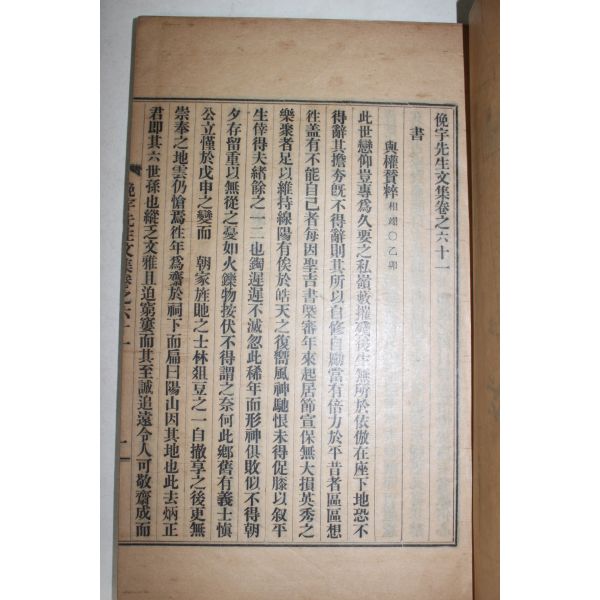 俛宇先生文集卷之六十一
書
與權贊粹 相翊○乙卯
此世戀仰豈專爲久要之私嶺数摧殘後生無所於依倣在座下地恐不
得辭其擔夯旣不得辭則其所以自修自勵當有倍力於平昔者區區想
徃盖有不能自已者每因聖吉書槩審年來起居節宣保無大損英秀之
樂聚者足以維持線陽有俟於皓天之復嚮風神馳恨未得促膝以叙平
生倖得夫緖餘之一二也鋾遲遲不滅忽此稀年而形神俱敗似不得朝
夕存留重以無從之憂如火鑠物按伏不得謂之奈何此鄕舊有義士愼
公立慬於戊申之變而 朝家旌貤之士林俎豆之一自撤享之後更無
崇奉之地雲仍愴焉徃年爲齋於祠下而扁曰陽山因其地也此去炳正
君卽其六世孫也縱之文雅且迫窮窶而其至誠追遠令人可敬齋成而
俛宇先生文集卷之六十一
一